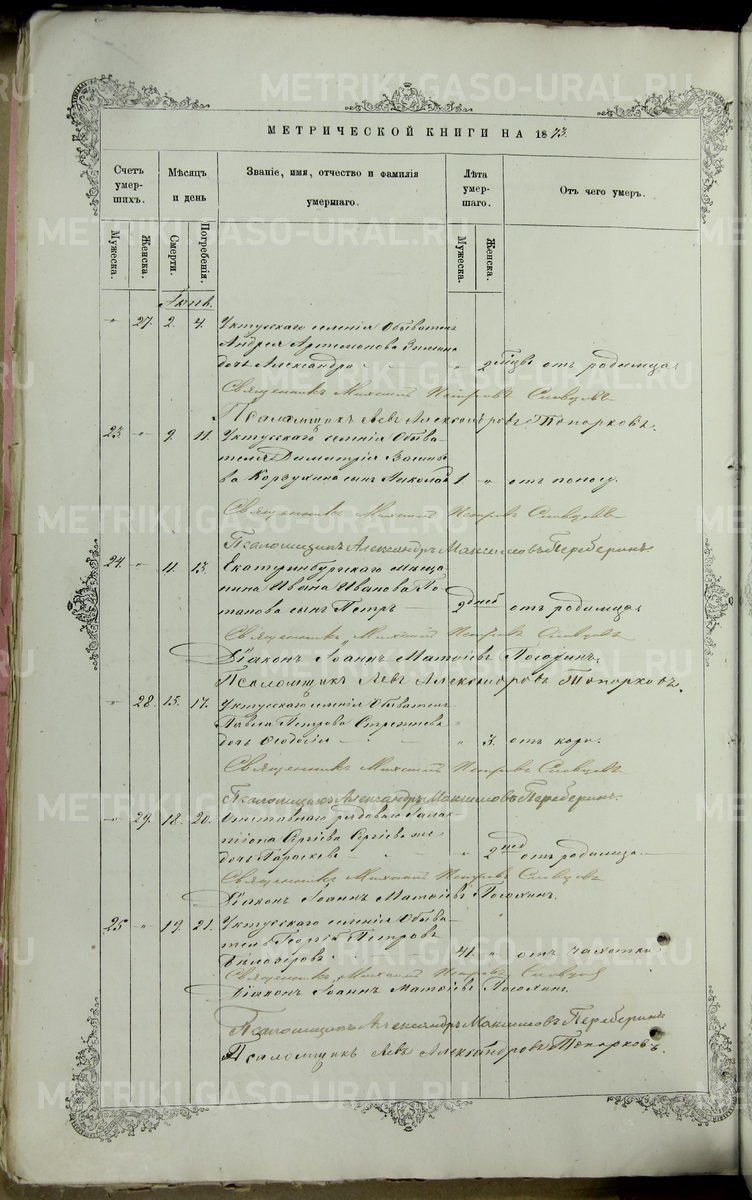 МЕТРИЧЕСКОЙ КНИГИ НА 1873.
Счетъ умер-шихъ.
Мѣсяцъ и день
Званіе, имя, отчество и фамилія умершаго.
Лѣта умер-шаго.
Отъ чего умеръ.
Мужеска.
Женска.
Смерти.
Погребенія.
Мужеска.
Женска.
27. 2. 4. Уктусскаго селенія Обыватель
Андрея Артемонова
дочь Александра 2 мѣсяц. отъ родимца
Священникъ Михаилъ Петровъ Словцовъ
Псаломщикъ Левъ Александровъ Топорковъ.
23. " 9. 11. Уктусскаго селенія Обыва-
теля Димитрія Василь-
ва Корзухина сынъ Николай 1 " отъ поносу.
Священникъ Михаилъ Петровъ Словцовъ
Псаломщикъ Александръ Максимовъ Переберинъ
24. " 11. 13. Екатеринбургскаго мѣща-
нина Ивана Иванова По-
танова сынъ Петръ 2 дней отъ родимца
Священникъ Михаилъ Петровъ Словцовъ
Діаконъ Іоаннъ Матѳіевъ
Псаломщикъ Левъ Александровъ Топорковъ.
" 28. 15. 17. Уктусскаго селенія Обывателя
Павла Петрова
дочь Ѳеодосія " 3. отъ кори.
Священникъ Михаилъ Петровъ Словцовъ
Псаломщикъ Александръ Максимовъ Переберинъ.
" 29. 18. 20. Отставнаго рядоваго
Сергіева Сергіева
дочь Параскева " 2 нед отъ родимца
Священникъ Михаилъ Петровъ Словцовъ
Діаконъ Іоаннъ Матѳіевъ
25 " 19. 21. Уктусскаго селенія Обыва-
тель Георгій Петровъ
Бѣлозеровъ 41. " отъ чахотки
Священникъ Михаилъ Петровъ Словцовъ
Діаконъ Іоаннъ Матѳіевъ
Псаломщикъ Александръ Максимовъ Переберинъ
Псаломщикъ Левъ Александровъ Топорковъ.
METRIKI.GASO-URAL.RU